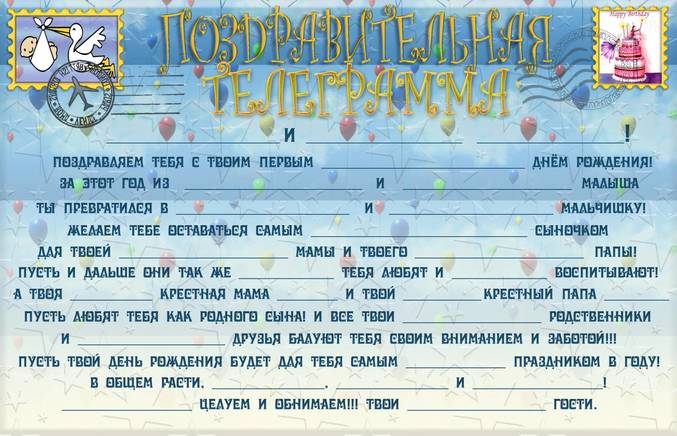 Happy Birthday
ПОЗДРАВИТЕЛЬНАЯ
ТЕЛЕГРАММА
____________ И ____________ ____________!
ПОЗДРАВЛЯЕМ ТЕБЯ С ТВОИМ ПЕРВЫМ ____________ ДНЁМ РОЖДЕНИЯ!
ЗА ЭТОТ ГОД ИЗ ____________ И ____________ МАЛЫША
ТЫ ПРЕВРАТИЛСЯ В ____________ И ____________ МАЛЬЧИШКУ!
ЖЕЛАЕМ ТЕБЕ ОСТАВАТЬСЯ САМЫМ ____________ СЫНОЧКОМ
ДЛЯ ТВОЕЙ ____________ МАМЫ И ТВОЕГО ____________ ПАПЫ!
ПУСТЬ И ДАЛЬШЕ ОНИ ТАК ЖЕ ____________ ТЕБЯ ЛЮБЯТ И ____________ ВОСПИТЫВАЮТ!
А ТВОЯ ____________ КРЕСТНАЯ МАМА ____________ И ТВОЙ ____________ КРЕСТНЫЙ ПАПА ____________
ПУСТЬ ЛЮБЯТ ТЕБЯ КАК РОДНОГО СЫНА! И ВСЕ ТВОИ ____________ РОДСТВЕННИКИ
И ____________ ДРУЗЬЯ БАЛУЮТ ТЕБЯ СВОИМ ВНИМАНИЕМ И ЗАБОТОЙ!!!
ПУСТЬ ТВОЙ ДЕНЬ РОЖДЕНИЯ БУДЕТ ДЛЯ ТЕБЯ САМЫМ ____________ ПРАЗДНИКОМ В ГОДУ!
В ОБЩЕМ РАСТИ, ____________, ____________ И ____________!
____________ ЦЕЛУЕМ И ОБНИМАЕМ!!! ТВОИ ____________ ГОСТИ.